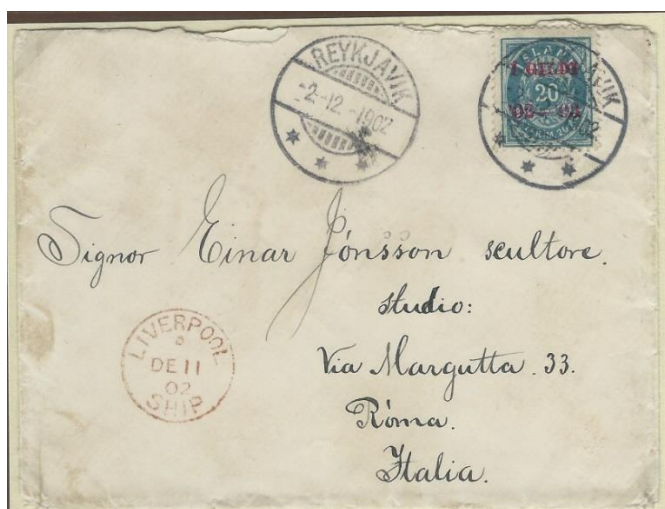 REYKJAVIK
-2.-12.-1902
ÍSLAND
Í GILDI
20
'02-'03
Signor Einar Jónsson scultore.
studio:
Via Margutta. 33.
Róma.
Italia.
LIVERPOOL
DE 11
02
SHIP